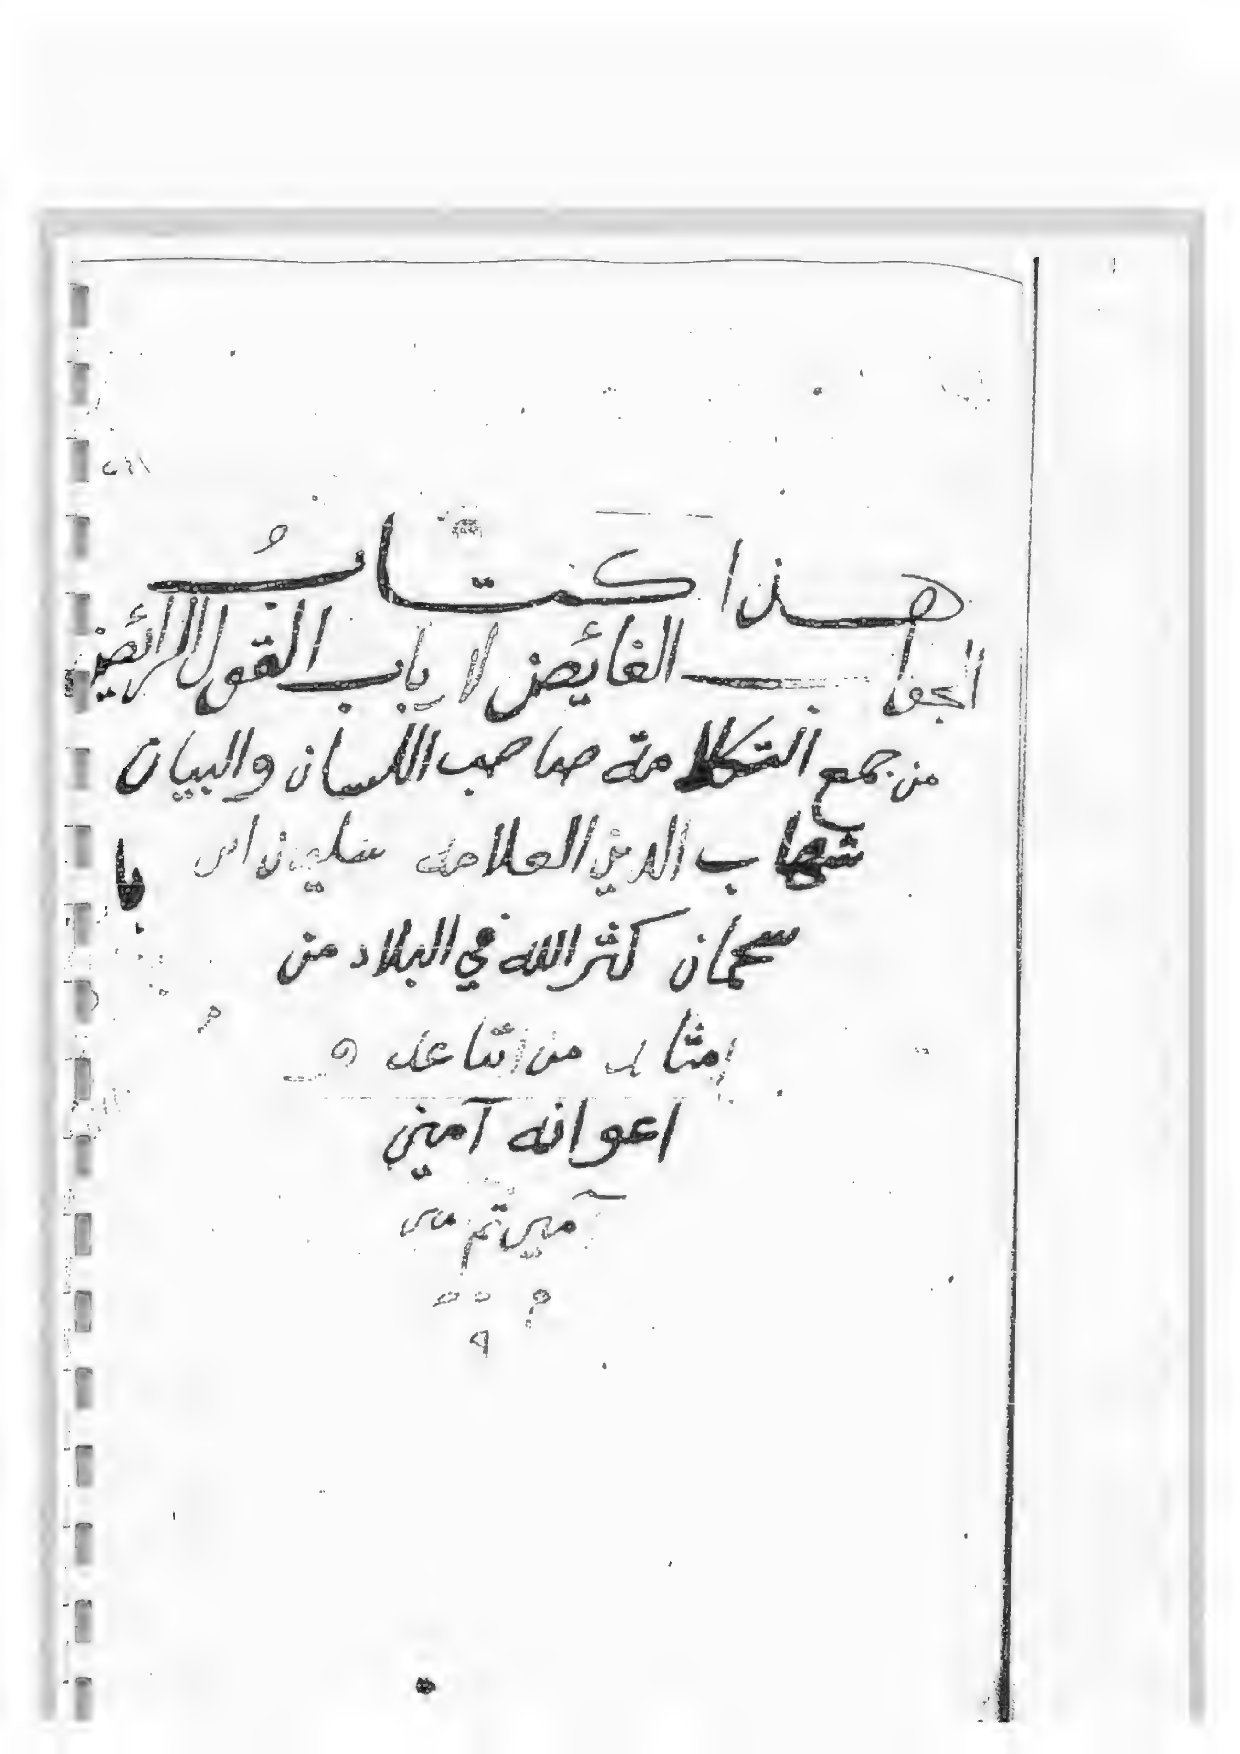 هذا كتابُ
الجواب الفائض لارباب القول الرائض
من جمع التكلامة صاحب اللسان والبيان
شهاب الدين العلامه سليمن ابن
سحمان كثر الله في البلاد من
امثاله من اتباعه و
اعوانه آمين
آمين تم
م